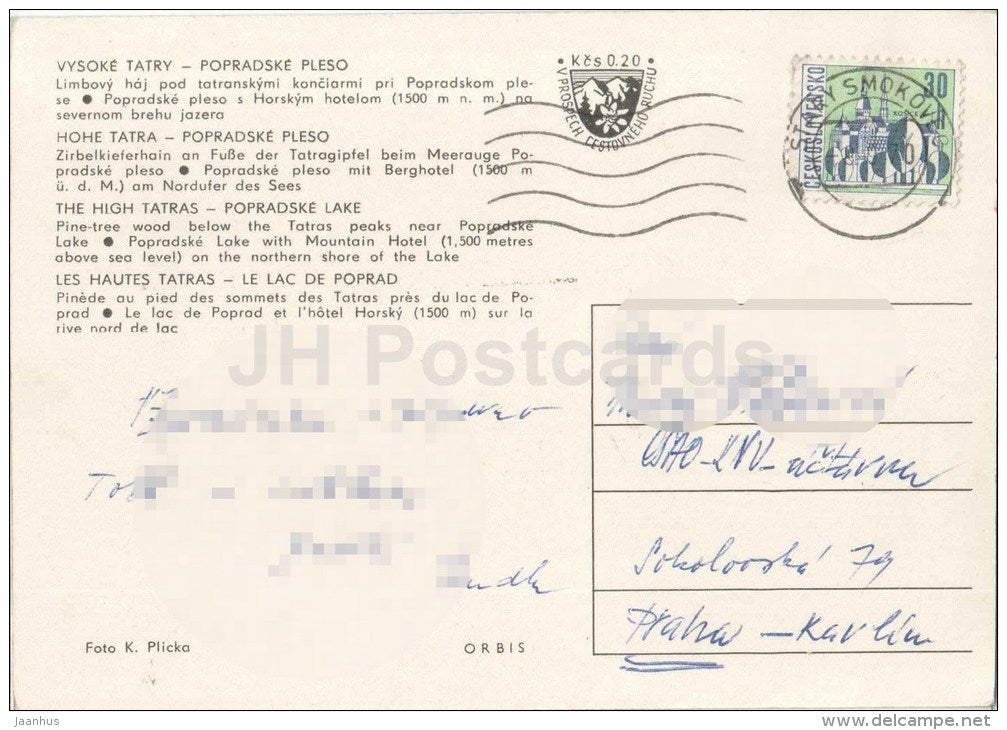 VYSOKÉ TATRY – POPRADSKÉ PLESO
Limbový háj pod tatranskými končiarmi pri Popradskom ple-
se ● Popradské pleso s Horským hotelom (1500 m n. m.) na
severnom brehu jazera
HOHE TATRA – POPRADSKÉ PLESO
Zirbelkieferhain an Fuße der Tatragipfel beim Meerauge Po-
pradské pleso ● Popradské pleso mit Berghotel (1500 m
ü. d. M.) am Nordufer des Sees
THE HIGH TATRAS – POPRADSKÉ LAKE
Pine-tree wood below the Tatras peaks near Popradské
Lake ● Popradské Lake with Mountain Hotel (1,500 metres
above sea level) on the northern shore of the Lake
LES HAUTES TATRAS – LE LAC DE POPRAD
Pinède au pied des sommets des Tatras près du lac de Po-
prad ● Le lac de Poprad et l'hôtel Horský (1500 m) sur la
rive nord de lac
• Kčs 0.20 •
V PROSPĚCH CESTOVNÉHO RUCHU
STARÝ SMOKOVEC
ČESKOSLOVENSKO
30
h
KOŠICE
JH Postcards
Sokolovská 79
Praha – Karlín
Foto K. Plicka
ORBIS
Jaanhus
www.delcampe.net